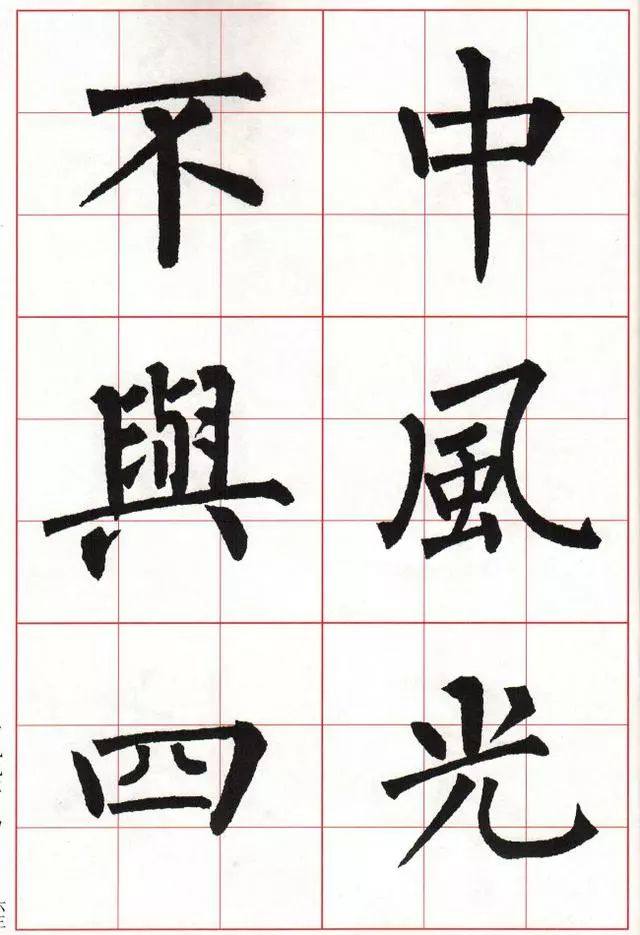 中風光
不與四